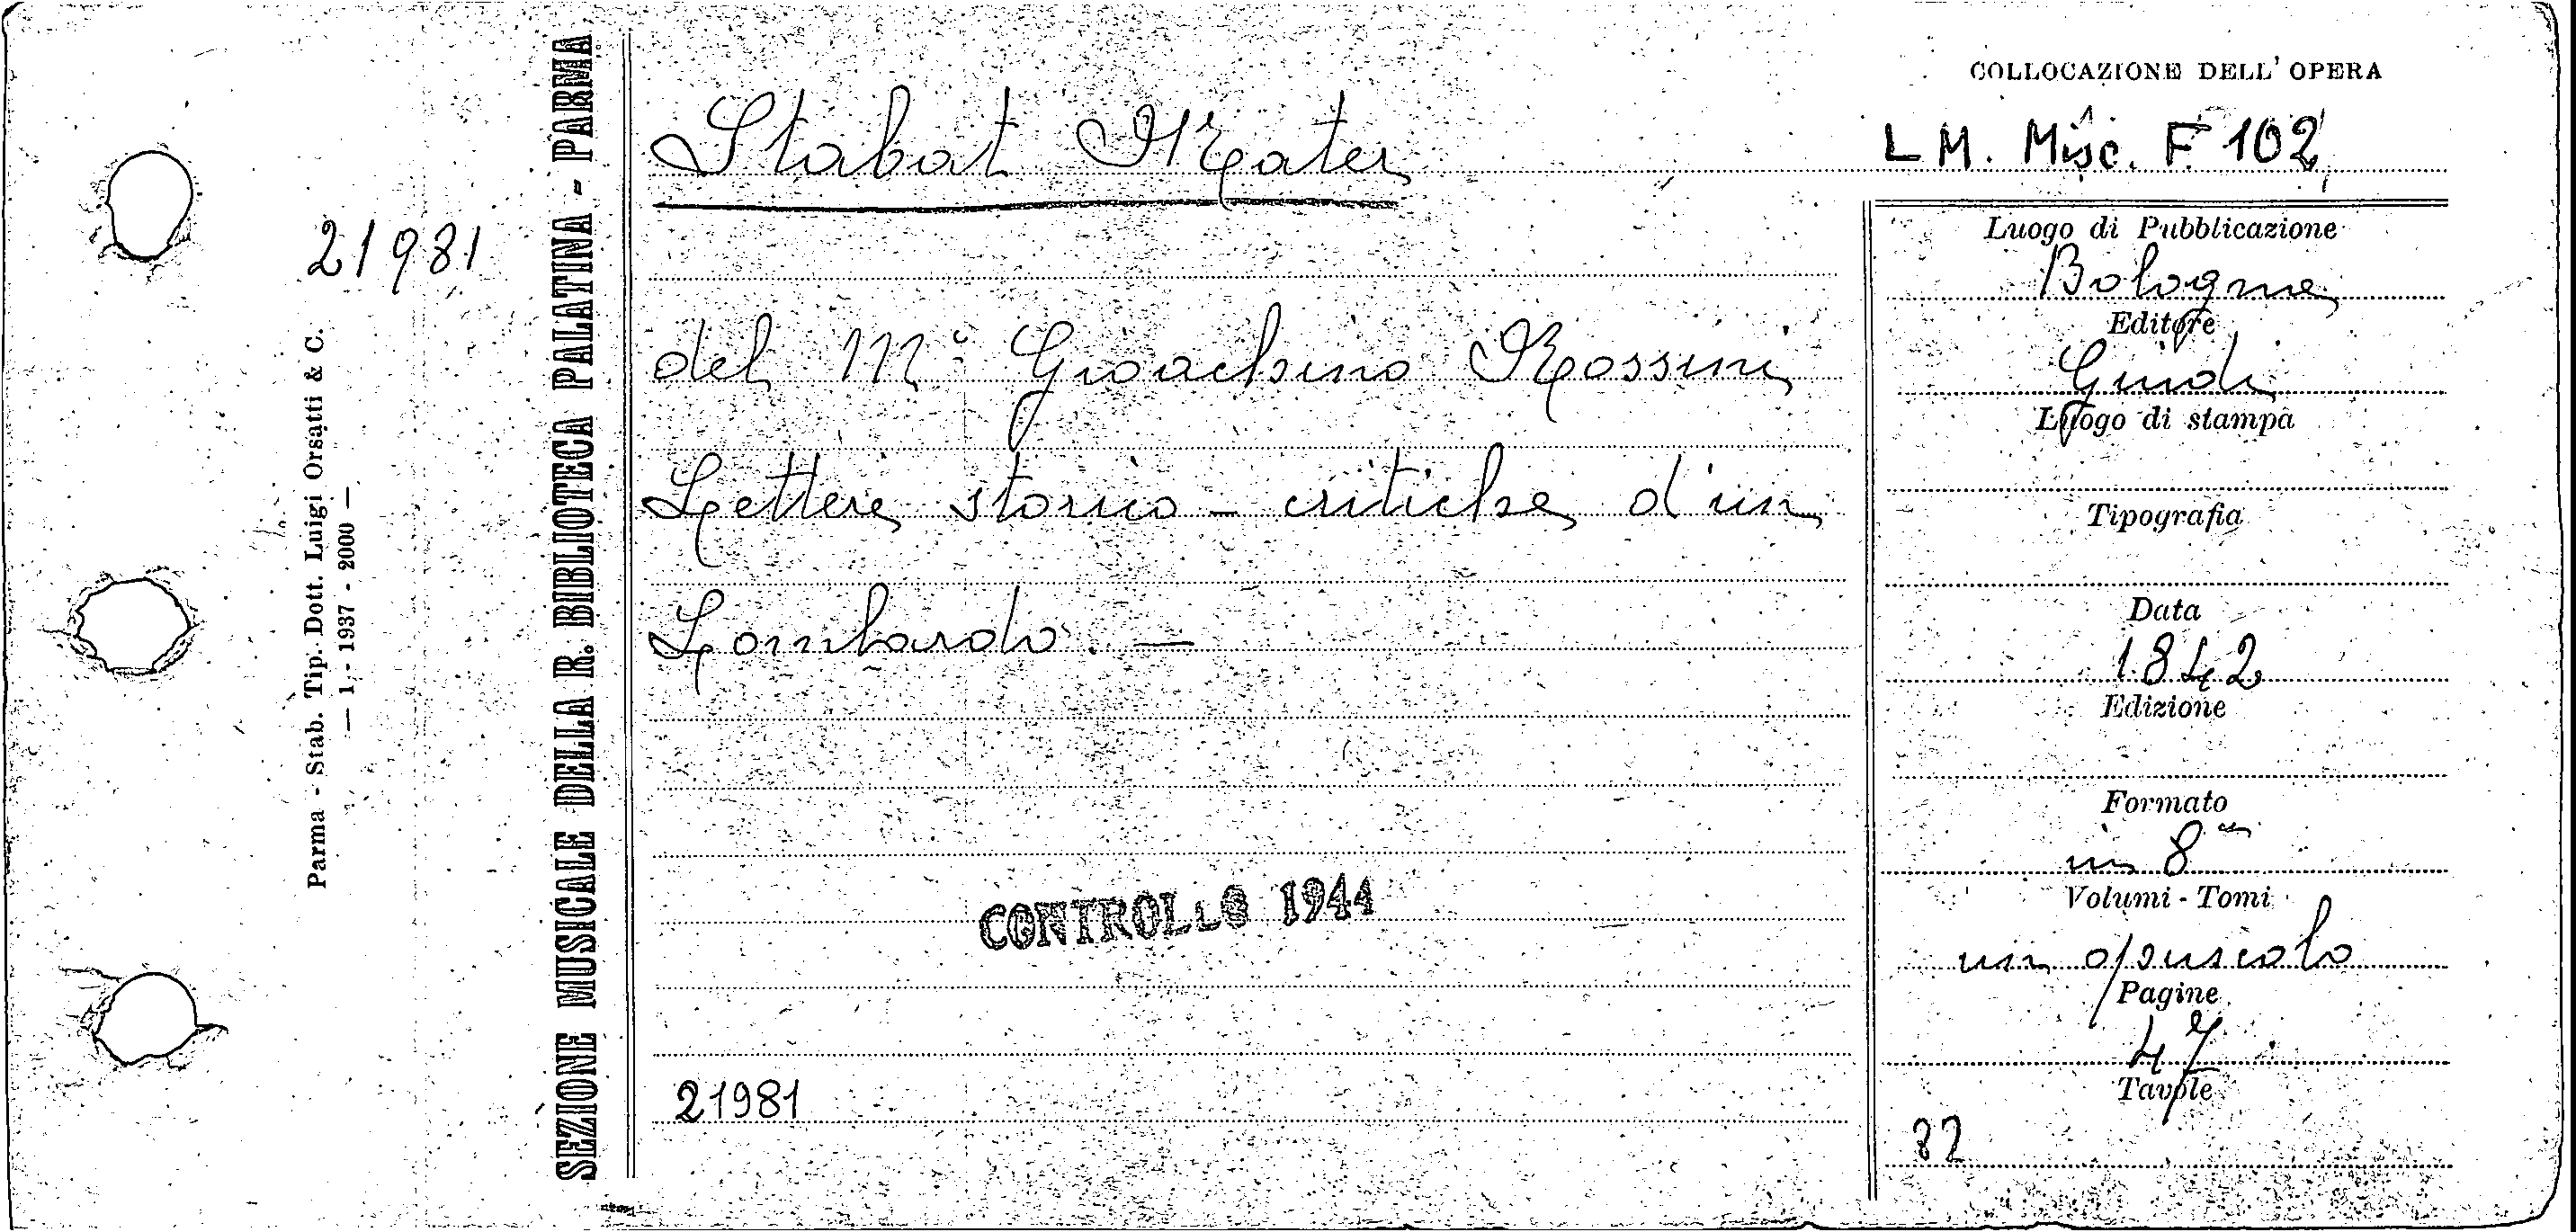 COLLOCAZIONE DELL' OPERA
L M. Misc. F 102
Stabat Mater
21981
del Mº Gioachino Rossini
Lettere storico - critiche d'un
Lombardo. —
CONTROLLO 1944
21981
Luogo di Pubblicazione
Bologna
Editore
Guidi
Luogo di stampa
Tipografia
Data
1842
Edizione
Formato
in 8º
Volumi - Tomi
un opuscolo
Pagine
47
Tavole
82
SEZIONE MUSICALE DELLA R. BIBLIOTECA PALATINA - PARMA
Parma - Stab. Tip. Dott. Luigi Orsatti & C.
— 1 - 1937 - 2000 —